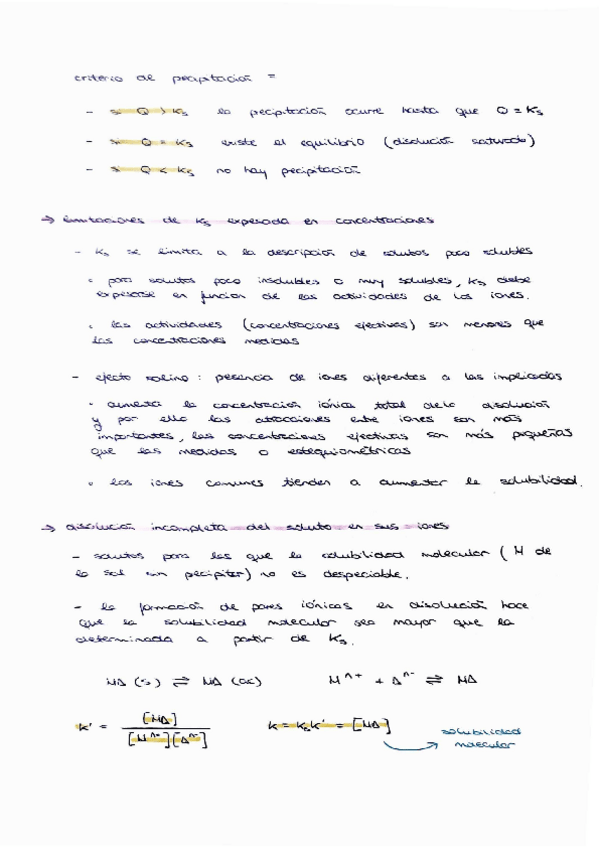 criterio de precipitación =
- si Q > Ks la precipitación ocurre hasta que Q = Ks
- si Q = Ks existe el equilibrio (disolución saturada)
- si Q < Ks no hay precipitación
→ limitaciones de Ks expresada en concentraciones
- Ks se limita a la descripción de solutos poco solubles
• para solutos poco insolubles o muy solubles, Ks debe
expresarse en función de las actividades de los iones.
• las actividades (concentraciones efectivas) son menores que
las concentraciones medidas
- efecto salino : presencia de iones diferentes a las implicadas
• aumenta la concentración iónica total de la disolución
y por ello las atracciones entre iones son más
importantes, las concentraciones efectivas son más pequeñas
que las medidas o estequiométricas
• los iones comunes tienden a aumentar la solubilidad.
→ disolución incompleta del soluto en sus iones
- solutos para los que la solubilidad molecular (M de
la sal sin precipitar) no es despreciable.
- la formación de pares iónicos en disolución hace
que la solubilidad molecular sea mayor que la
determinada a partir de Ks.
MA (s) ⇌ MA (ac) Mⁿ⁺ + Aⁿ⁻ ⇌ MA
K' = [MA] / [Mⁿ⁺][Aⁿ⁻] K = KsK' = [MA]
solubilidad
molecular